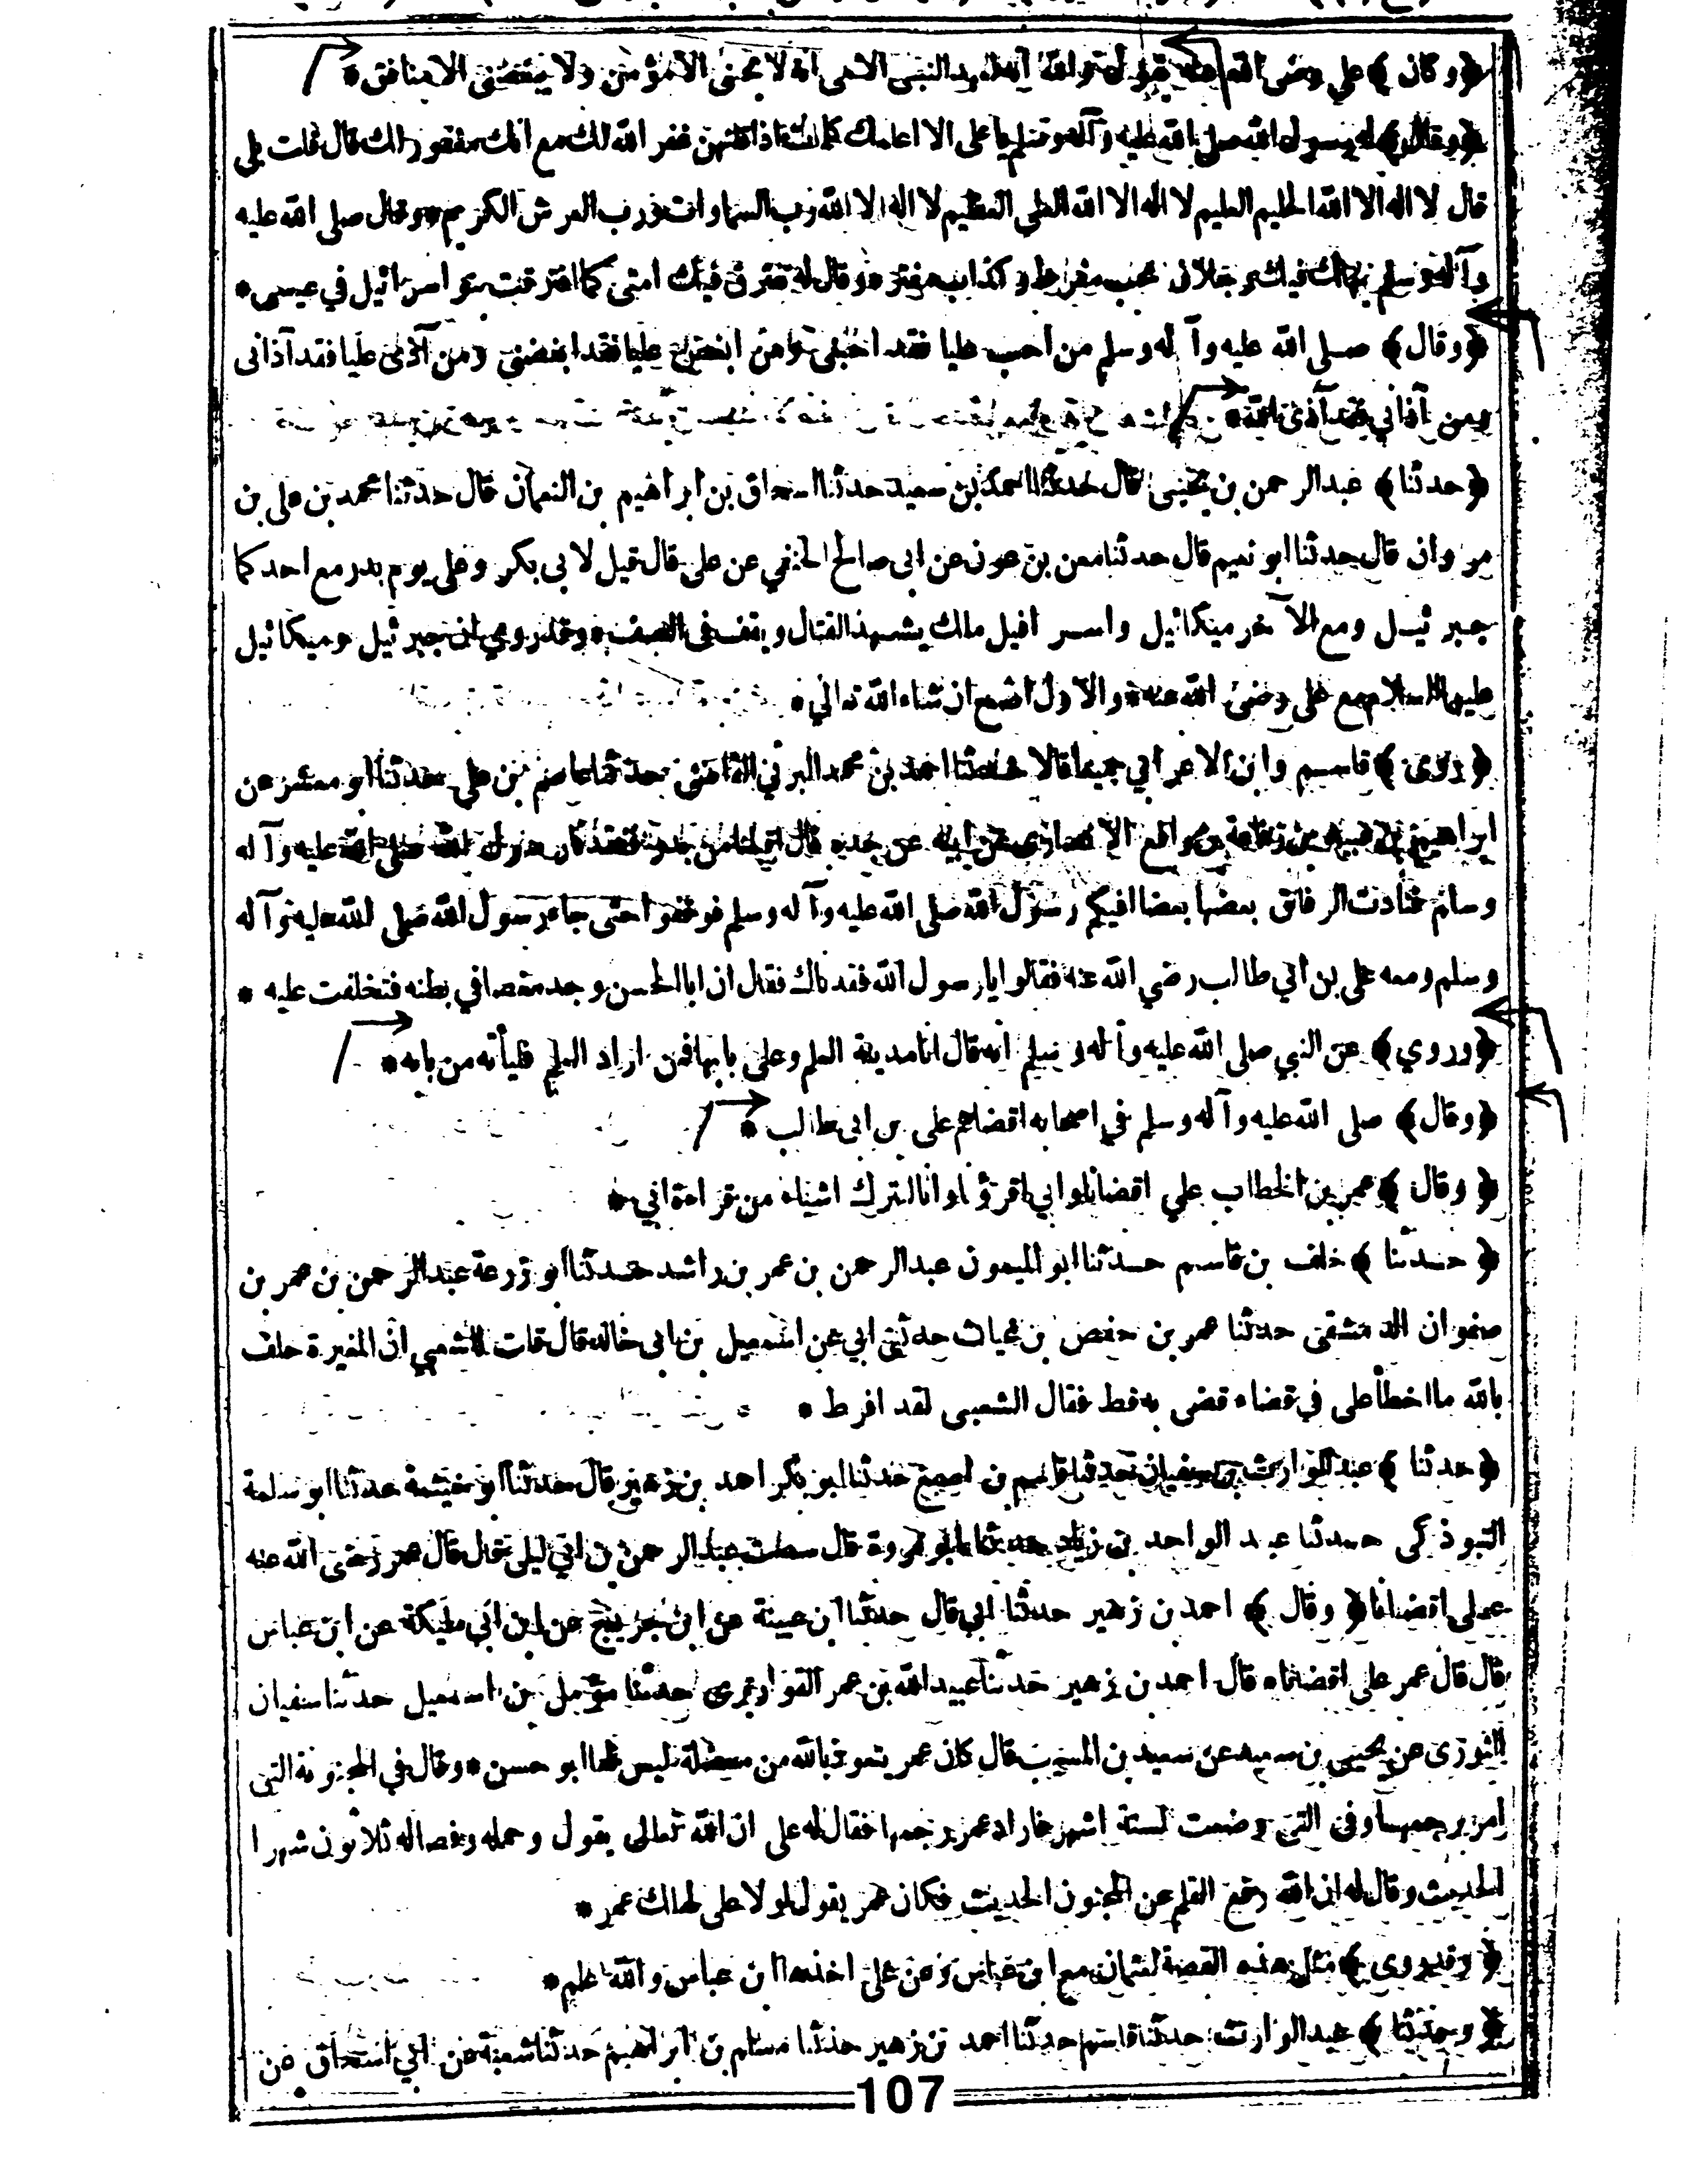 ﴿وكان﴾ علي رضي الله عنه يقول والله انه لعهد النبي الامي انه لا يحبني الا مؤمن ولا يبغضني الا منافق *
﴿وقال﴾ له رسول الله صلى الله عليه وآله وسلم يا على الا اعلمك كلمات اذا قلتهن غفر الله لك مع انك مغفور لك قال قلت بلى
قال لا اله الا الله الحليم العليم لا اله الا الله العلي العظيم لا اله الا الله رب السماوات ورب العرش الكريم * وقال صلى الله عليه
وآله وسلم يهلك فيك رجلان محب مفرط وكذاب مفتر * وقال له تفترق فيك امتى كما افترقت بنو اسرائيل في عيسى *
﴿وقال﴾ صلى الله عليه وآله وسلم من احب عليا فقد احبنى ومن ابغض عليا فقد ابغضنى ومن آذى عليا فقد آذانى
ومن آذاني فقد آذى الله *
﴿حدثنا﴾ عبد الرحمن بن يحيى قال حدثنا احمد بن سعيد حدثنا اسحاق بن ابراهيم بن النعمان قال حدثنا محمد بن على بن
مروان قال حدثنا ابو نعيم قال حدثنا معن بن عون عن ابى صالح الحنفي عن على قال قيل لابى بكر وعلى يوم بدر مع احدكما
جبرئيل ومع الآخر ميكائيل واسرافيل ملك يشهد القتال ويقف فى الصف * وقد روي ان جبرئيل وميكائيل
عليهما السلام مع على رضى الله عنه * والاول اصح ان شاء الله تعالى *
﴿روى﴾ قاسم وابن الاعرابي جميعا قالا حدثنا احمد بن محمد البرتي القاضى حدثنا عاصم بن على حدثنا ابو معشر عن
ابراهيم بن عبيد بن رفاعة بن رافع الانصارى عن ابيه عن جده قال اقبلنا من بدر ففقدنا رسول الله صلى الله عليه وآله
وسلم فنادت الرفاق بعضها بعضا افيكم رسول الله صلى الله عليه وآله وسلم فوقفوا حتى جاء رسول الله صلى الله عليه وآله
وسلم ومعه على بن ابي طالب رضي الله عنه فقالوا يا رسول الله فقدناك فقال ان ابا الحسن وجد مغصا في بطنه فتخلفت عليه *
﴿وروي﴾ عن النبي صلى الله عليه وآله وسلم انه قال انا مدينة العلم وعلى بابها فمن اراد العلم فليأته من بابه *
﴿وقال﴾ صلى الله عليه وآله وسلم في اصحابه اقضاهم على بن ابى طالب *
﴿وقال﴾ عمر بن الخطاب علي اقضانا وابي اقرؤنا وانا لنترك اشياء من قراءة ابي *
﴿حدثنا﴾ خلف بن قاسم حدثنا ابو الميمون عبد الرحمن بن عمر بن راشد حدثنا ابو زرعة عبد الرحمن بن عمر بن
صفوان الدمشقى حدثنا عمر بن حفص بن غياث حدثنى ابي عن اسمعيل بن ابى خالد قال قلت للشعبي ان المغيرة حلف
بالله ما اخطأ على في قضاء قضى به قط فقال الشعبى لقد افرط *
﴿حدثنا﴾ عبد الوارث بن سفيان حدثنا قاسم بن اصبغ حدثنا ابو بكر احمد بن زهير قال حدثنا ابو خيثمة حدثنا ابو سلمة
التبوذكى حدثنا عبد الواحد بن زياد حدثنا ابو فروة قال سمعت عبد الرحمن بن ابي ليلى قال قال عمر رضى الله عنه
على اقضانا ﴿وقال﴾ احمد بن زهير حدثنا ابي قال حدثنا ابن عيينة عن ابن جريج عن ابن ابي مليكة عن ابن عباس
قال قال عمر على اقضانا * قال احمد بن زهير حدثنا عبيد الله بن عمر القواريرى حدثنا مؤمل بن اسمعيل حدثنا سفيان
الثورى عن يحيى بن سعيد عن سعيد بن المسيب قال كان عمر يتعوذ بالله من معضلة ليس لها ابو حسن * وقال في المجنونة التى
امر برجمها وفى التى وضعت لستة اشهر فاراد عمر رجمها فقال له على ان الله تعالى يقول وحمله وفصاله ثلاثون شهرا
الحديث وقال له ان الله رفع القلم عن المجنون الحديث فكان عمر يقول لولا على لهلك عمر *
﴿وقد روى﴾ مثل هذه القصة لعثمان مع ابن عباس وعن على اخذها ابن عباس والله اعلم *
﴿وحدثنا﴾ عبد الوارث حدثنا قاسم حدثنا احمد بن زهير حدثنا مسلم بن ابراهيم حدثنا شعبة عن ابي اسحاق عن
107